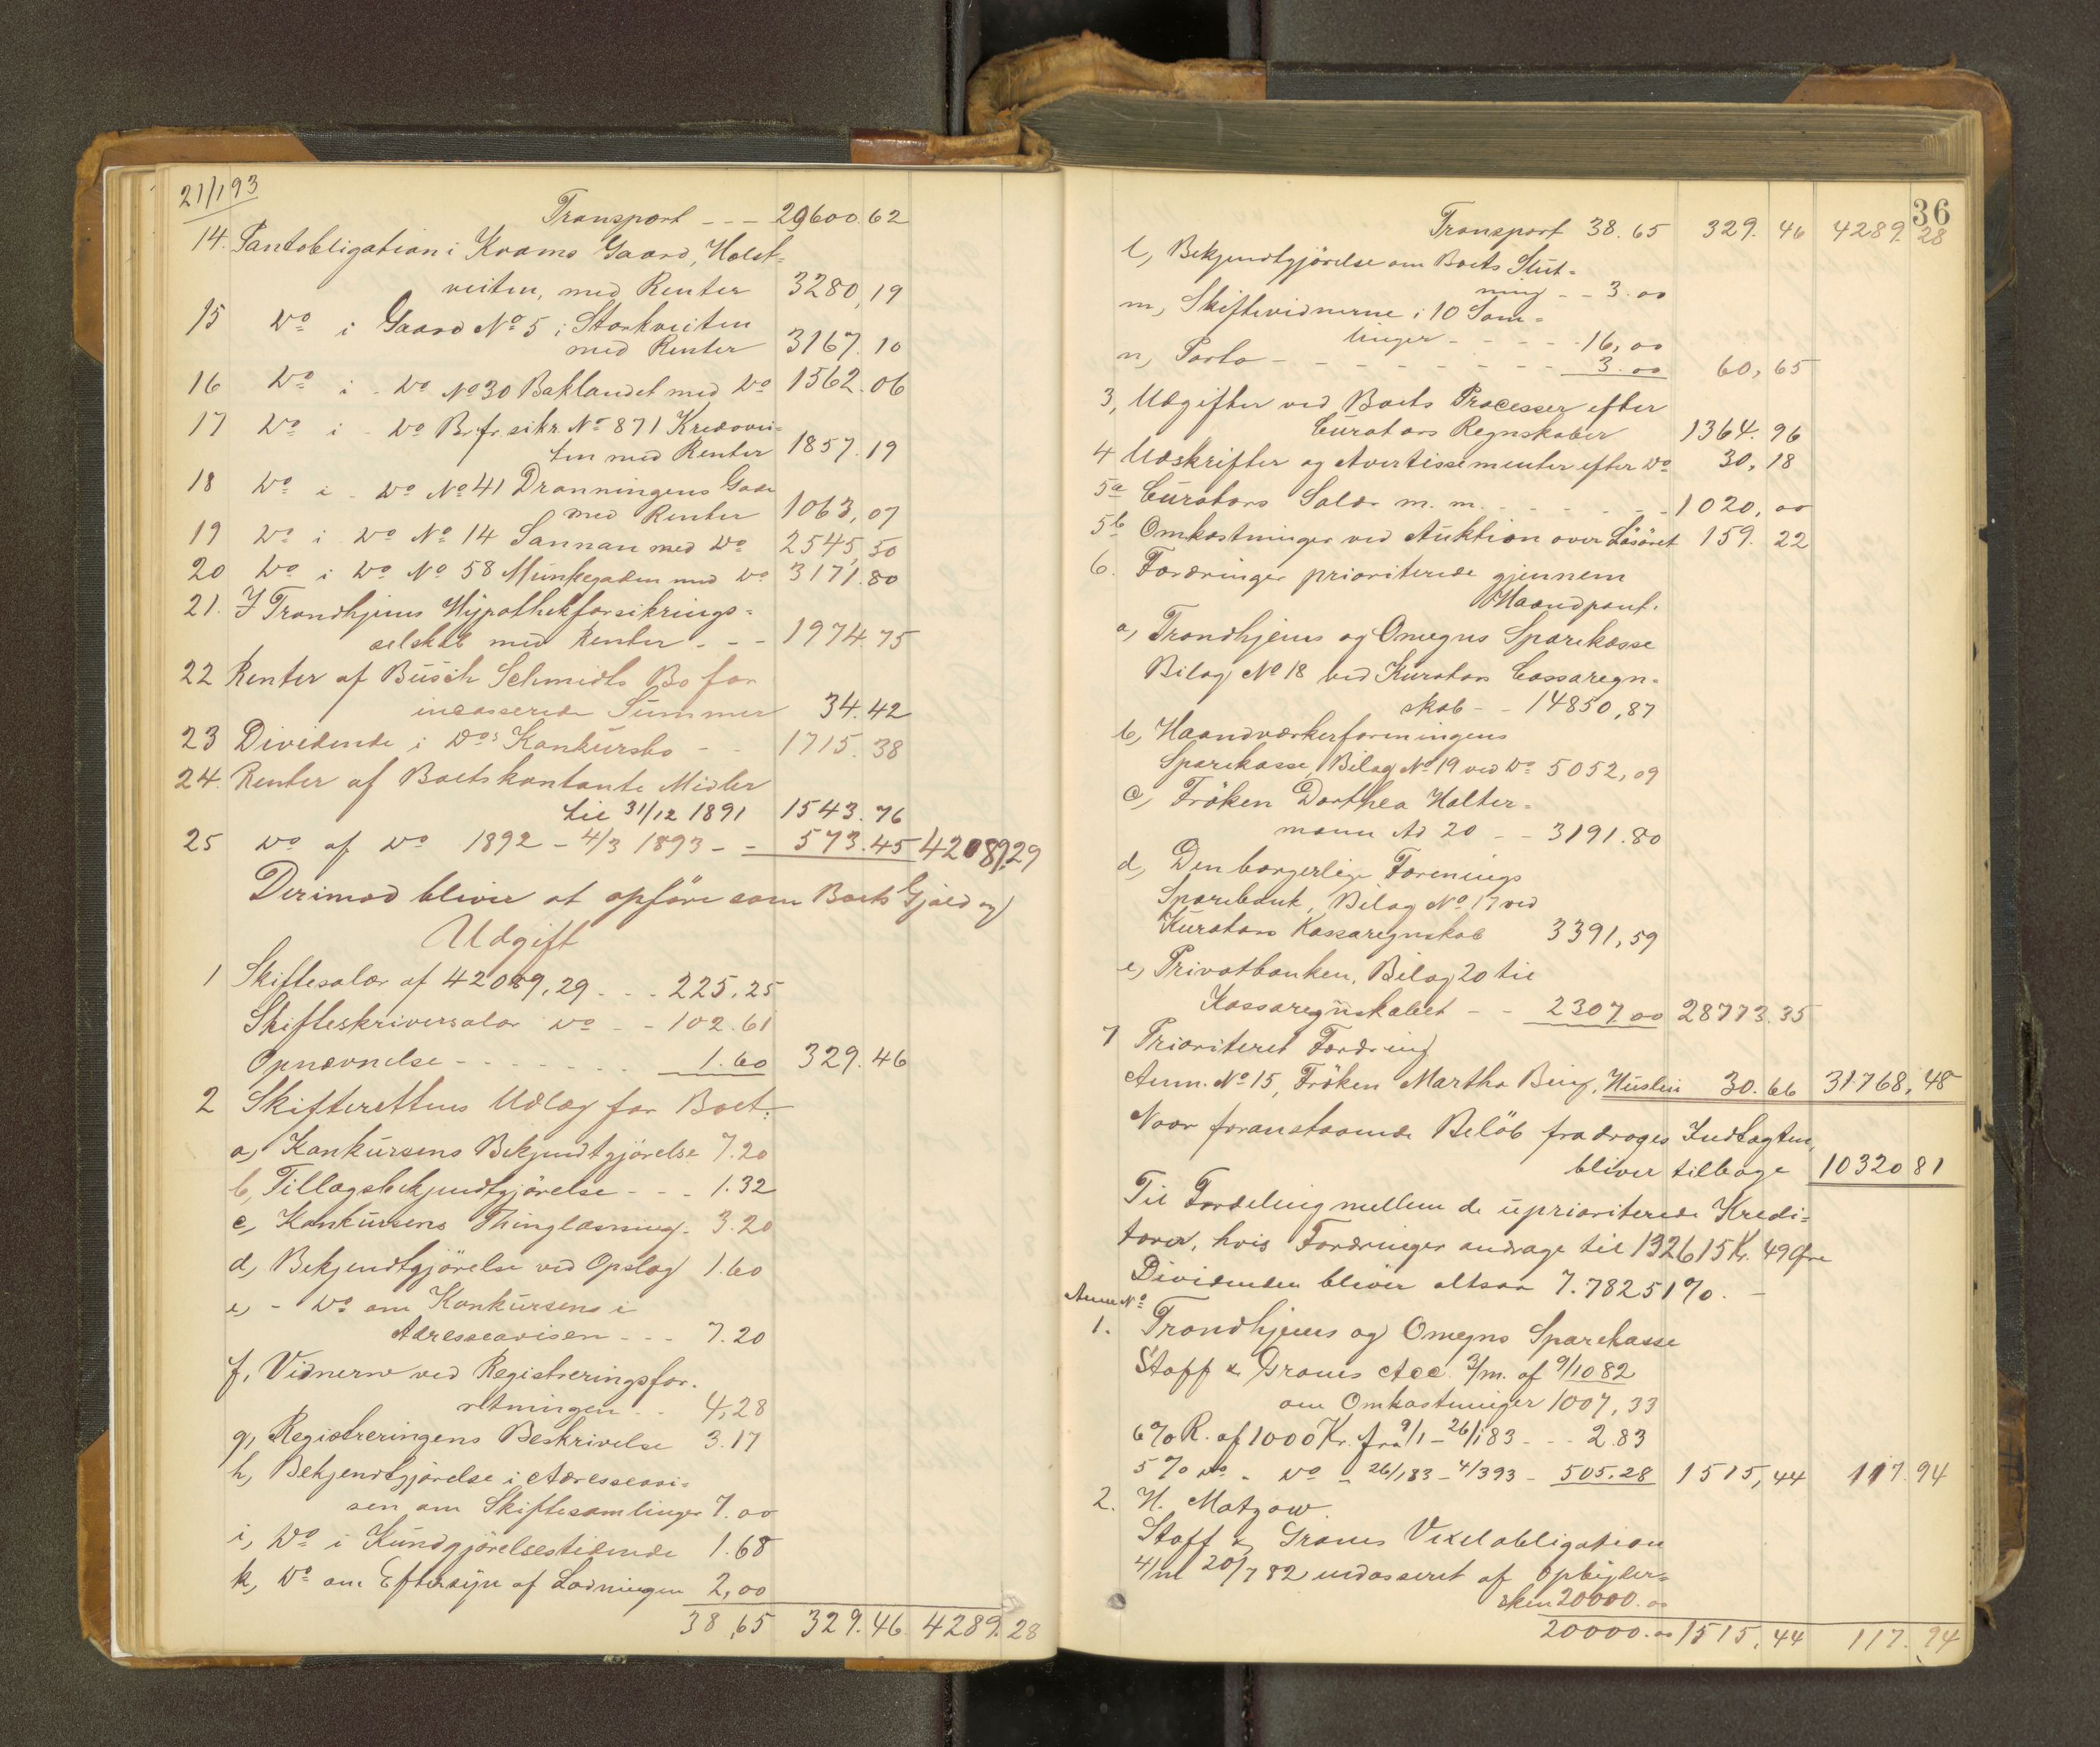 21/1 93
Transport - - - 29600.62
14. Pantobligation i Krams Gaard, Holst-
veiten, med Renter 3280,19
15 Do i Gaard No 5 i Storkveiten
med Renter 3167.10
16 Do i - Do No 30 Baklandet med Do 1562.06
17 Do i - Do Br.fr.sikr No 871 Kredovei-
ten med Renter 1857.19
18 Do i - Do No 41 Dronningens Gade
med Renter 1063,07
19 Do i Do No 14 Sannan med Do 2545,50
20 Do i Do No 58 Munkegaden med Do 3171.80
21. I Trondhjems Hypothekforsikrings-
selskab med Renter - - - 1974.75
22 Renter af Busch Schmidts Bo for
incasserede Summer 34.42
23 Dividende i Dos Konkursbo - - 1715.38
24. Renter af Boets kontante Midler
til 31/12 1891 1543.76
25 Do af Do 1892 - 4/3 1893 - - 573.45 42089.29
Derimod bliver at opföre som Boets Gjæld og
Udgift
1 Skiftesalær af 42089,29 - - - 225.25
Skifteskriversalær Do - - 102.61
Opnævnelse - - - - - - - 1.60 329.46
2 Skifterettens Udlæg for Boet:
a, Konkursens Bekjendtgjörelse 7.20
b, Tillægsbekjendtgjörelse - - - 1.32
c, Konkursens Thinglæsning - 3.20
d, Bekjendtgjörelse ved Opslag 1.60
e, - Do om Konkursens i
Adresseavisen - - - 7.20
f, Vidnerne ved Registreringsfor-
retningen - - 4,28
g, Registreringens Beskrivelse 3.17
h, Bekjendtgjörelse i Adresseavi-
sen om Skiftesamlinger 7.00
i, Do i Kundgjörelsestidende 1.68
k, Do om Eftersyn af Ladningen 2,00
38,65 329.46 4289.28
36
Transport 38.65 329.46 4289.28
l, Bekjendtgjörelse om Boets Slut-
ning - - 3.00
m, Skiftevidnerne i 10 Sam-
linger - - - - - 16,00
n, Porto - - - - - - - - 3.00 60,65
3, Udgifter ved Boets Processer efter
Curators Regnskaber 1364.96
4 Udskrifter og Avertissementer efter Do 30,18
5a Curators Salær m. m. - - - - - 1020,00
5b Omkostninger ved Auktion over Lösöret 159.22
6. Fordringer prioriterede gjennem
Haandpant.
a, Trondhjems og Omegns Sparekasse
Bilag No 18 ved Kurators Cassaregn-
skab - - 14850,87
b, Haandværkerforeningens
Sparekasse, Bilag No 19 ved Do 5052,09
c, Fröken Dorthea Halter-
mann Ad 20 - - 3191.80
d, Den borgerlige Forenings
Sparebank, Bilag No 17 ved
Kurators Kassaregnskab 3391,59
e, Privatbanken, Bilag 20 til
Kassaregnskabet - - 2307.00 28773.35
7 Prioriteret Fordring
Anm. No 15, Fröken Martha Bing, Husleie 30.66 31768,48
Naar foranstaaende Belöb fradrages Indtægten,
bliver tilbage 10320 81
Til Fordeling mellem de uprioriterede Kredi-
torer, hvis Fordringer andrage til 132615 Kr. 49 Øre
Dividenden bliver altsaa 7.78251%. -
Anm No
1. Trondhjems og Omegns Sparekasse
Staff & Grans Acc. 3/m. af 9/10 82
om Omkostninger 1007,33
6% R. af 1000 Kr. fra 9/1 - 26/1 83 - - - 2.83
5% Do - Do - 26/1 83 - 4/3 93 - 505.28 1515,44 117.94
2. H. Matzow
Staff & Grans Vexelobligation
4/m 20/7 82 endosseret af
20000.00
20000.00 1515,44 117.94